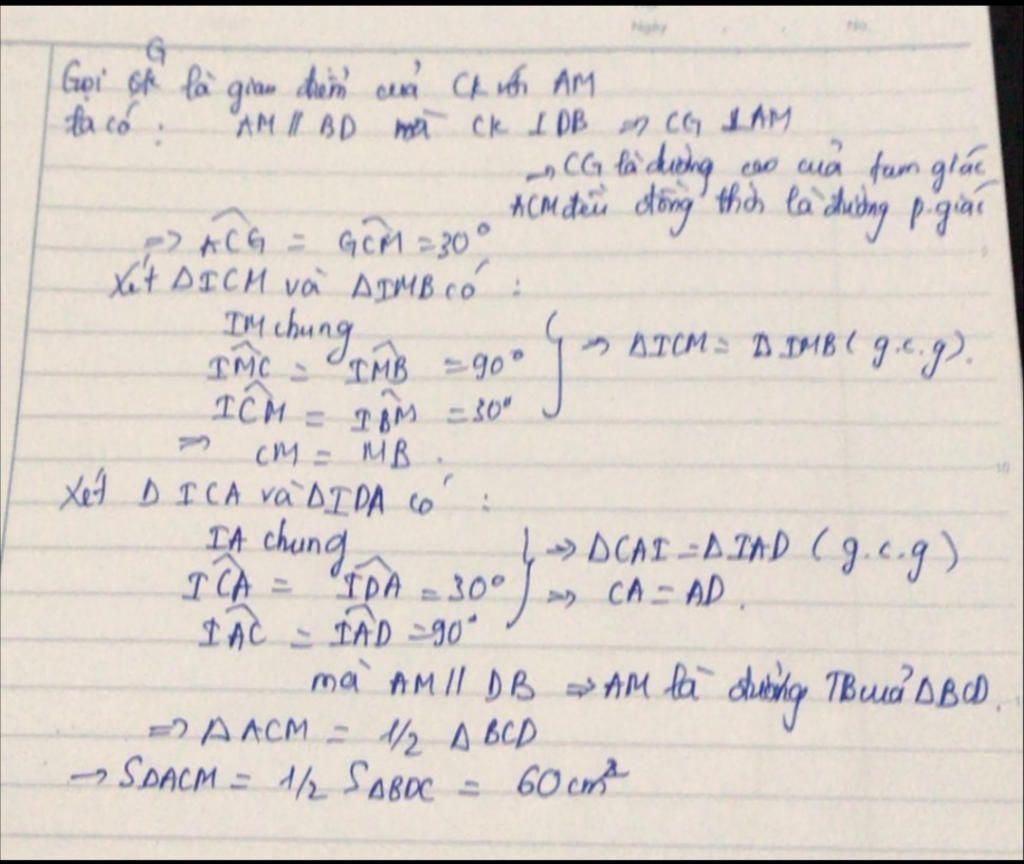 Ngày
No.
G
Gọi là giao điểm của CK với AM
ta có : AM // BD mà CK ⊥ DB => CG ⊥ AM
→ CG là đường cao của tam giác
ACM đều đồng thời là đường p.giác
=> ACG = GCM = 30°
Xét ΔICM và ΔIMB có :
IM chung
IMC = IMB = 90° } => ΔICM = ΔIMB ( g.c.g).
ICM = IBM = 30°
=> CM = MB .
Xét Δ ICA và ΔIDA có :
IA chung } => ΔCAI = ΔIAD ( g.c.g )
ICA = IDA = 30° => CA = AD .
IAC = IAD = 90°
mà AM // DB => AM là đường TB của ΔBCD .
=> Δ ACM = 1/2 Δ BCD
→ SΔACM = 1/2 SΔBDC = 60 cm²
10